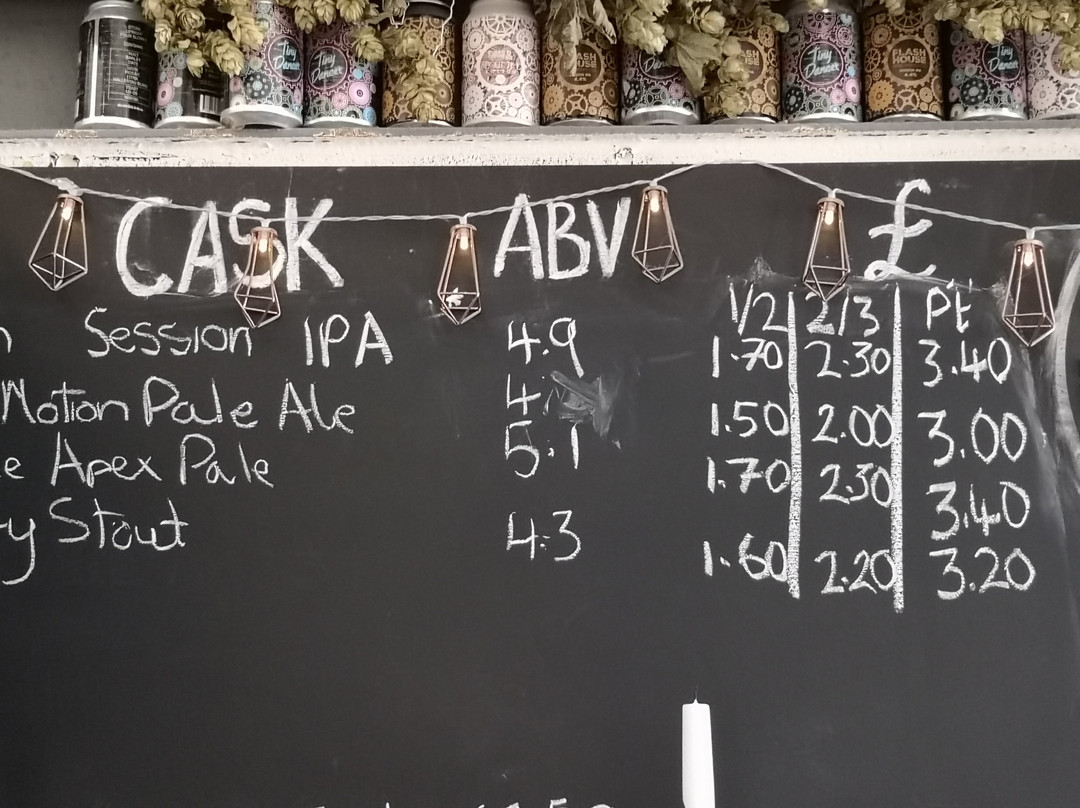 Tiny Dancer Tiny Dancer FLASH HOUSE Tiny Dancer FLASH HOUSE Tiny Dancer
CASK ABV £
1/2 2/3 Pt
Session IPA 4.9 1.70 2.30 3.40
Motion Pale Ale 4. 1.50 2.00 3.00
Apex Pale 5.1 1.70 2.30 3.40
Stout 4.3 1.60 2.20 3.20